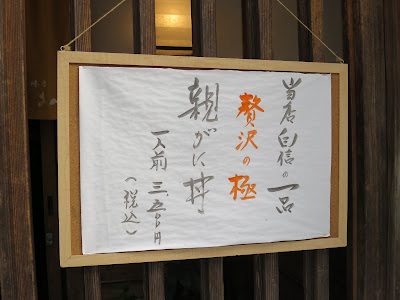 当店自信の一品
贅沢の極
親がに丼
一人前 三、五〇〇円
(税込)